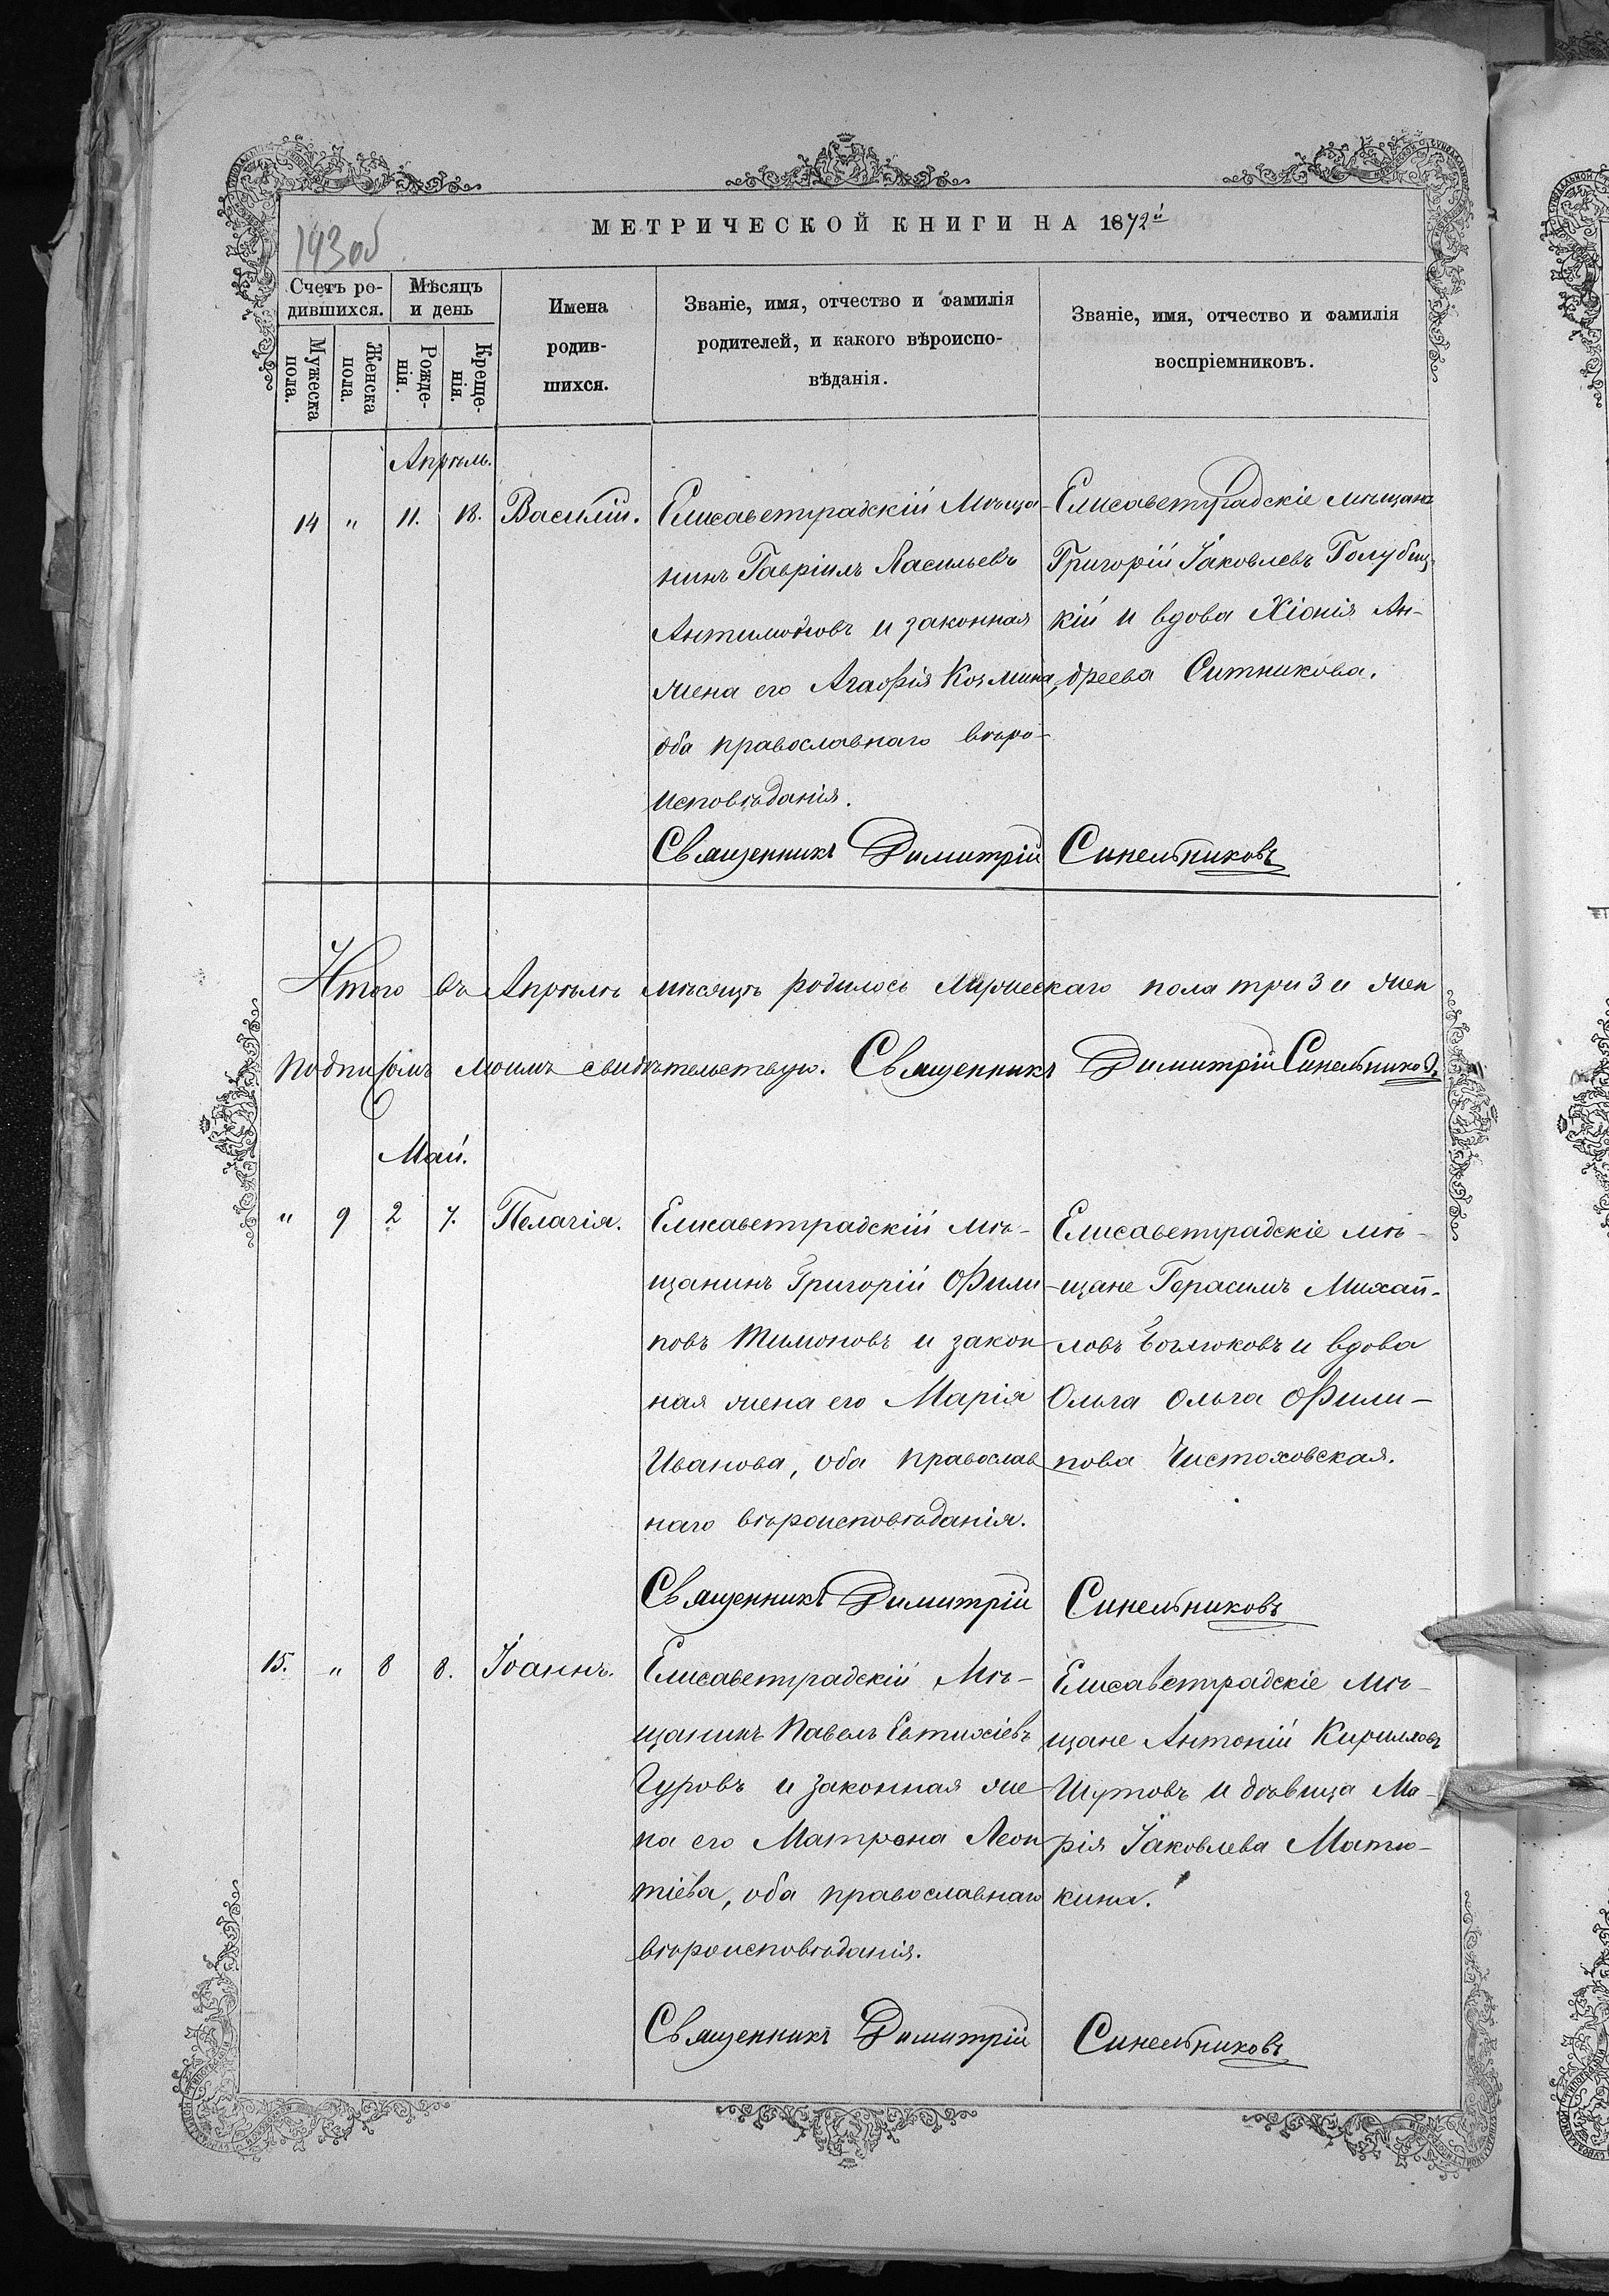 МЕТРИЧЕСКОЙ КНИГИ НА 1872й
193об
Счетъ ро-
дившихся.
Мужеска
пола.
Женска
пола.
Мѣсяцъ
и день
Рожде-
нія.
Креще-
нія.
Имена
родив-
шихся.
Званіе, имя, отчество и фамилія
родителей, и какого вѣроиспо-
вѣданія.
Званіе, имя, отчество и фамилія
воспріемниковъ.
Апрѣль.
14 " 11. 18. Василій.
Елисаветградскій Мѣща-
нинъ Гавріилъ Васильевъ
Антимоновъ и законная
жена его Агафія Козмина,
оба православнаго вѣро-
исповѣданія.
Елисаветградскіе мѣщане
Григорій Іаковлевъ Голубиц-
кій и вдова Хіонія Ан-
дреева Ситникова.
Священникъ Димитрій Синельниковъ
Итого въ Апрѣлѣ мѣсяцѣ родилось Мужескаго пола три 3 и жен
подписомъ моимъ свидѣтельствую. Священникъ Димитрій Синельников.
Май.
" 9 2 7. Пелагія.
Елисаветградскій мѣ-
щанинъ Григорій Фили-
повъ Тимоновъ и закон
ная жена его Марія
Иванова, оба православ
наго вѣроисповѣданія.
Елисаветградскіе мѣ-
щане Герасимъ Михай-
ловъ и вдова
Ольга Ольга Фили-
пова Чистоховская.
Священникъ Димитрій Синельниковъ
15. " 8 8. Іоаннъ.
Елисаветградскій Мѣ-
щанинъ Павелъ Евтихіевъ
Гуровъ и законная же-
на его Матрона Леон
тіева, оба православнаго
вѣроисповѣданія.
Елисаветградскіе мѣ-
щане Антоній Кирилловъ
Шутовъ и дѣвица Ма-
рія Іаковлева Матю-
кина.
Священникъ Димитрій Синельниковъ